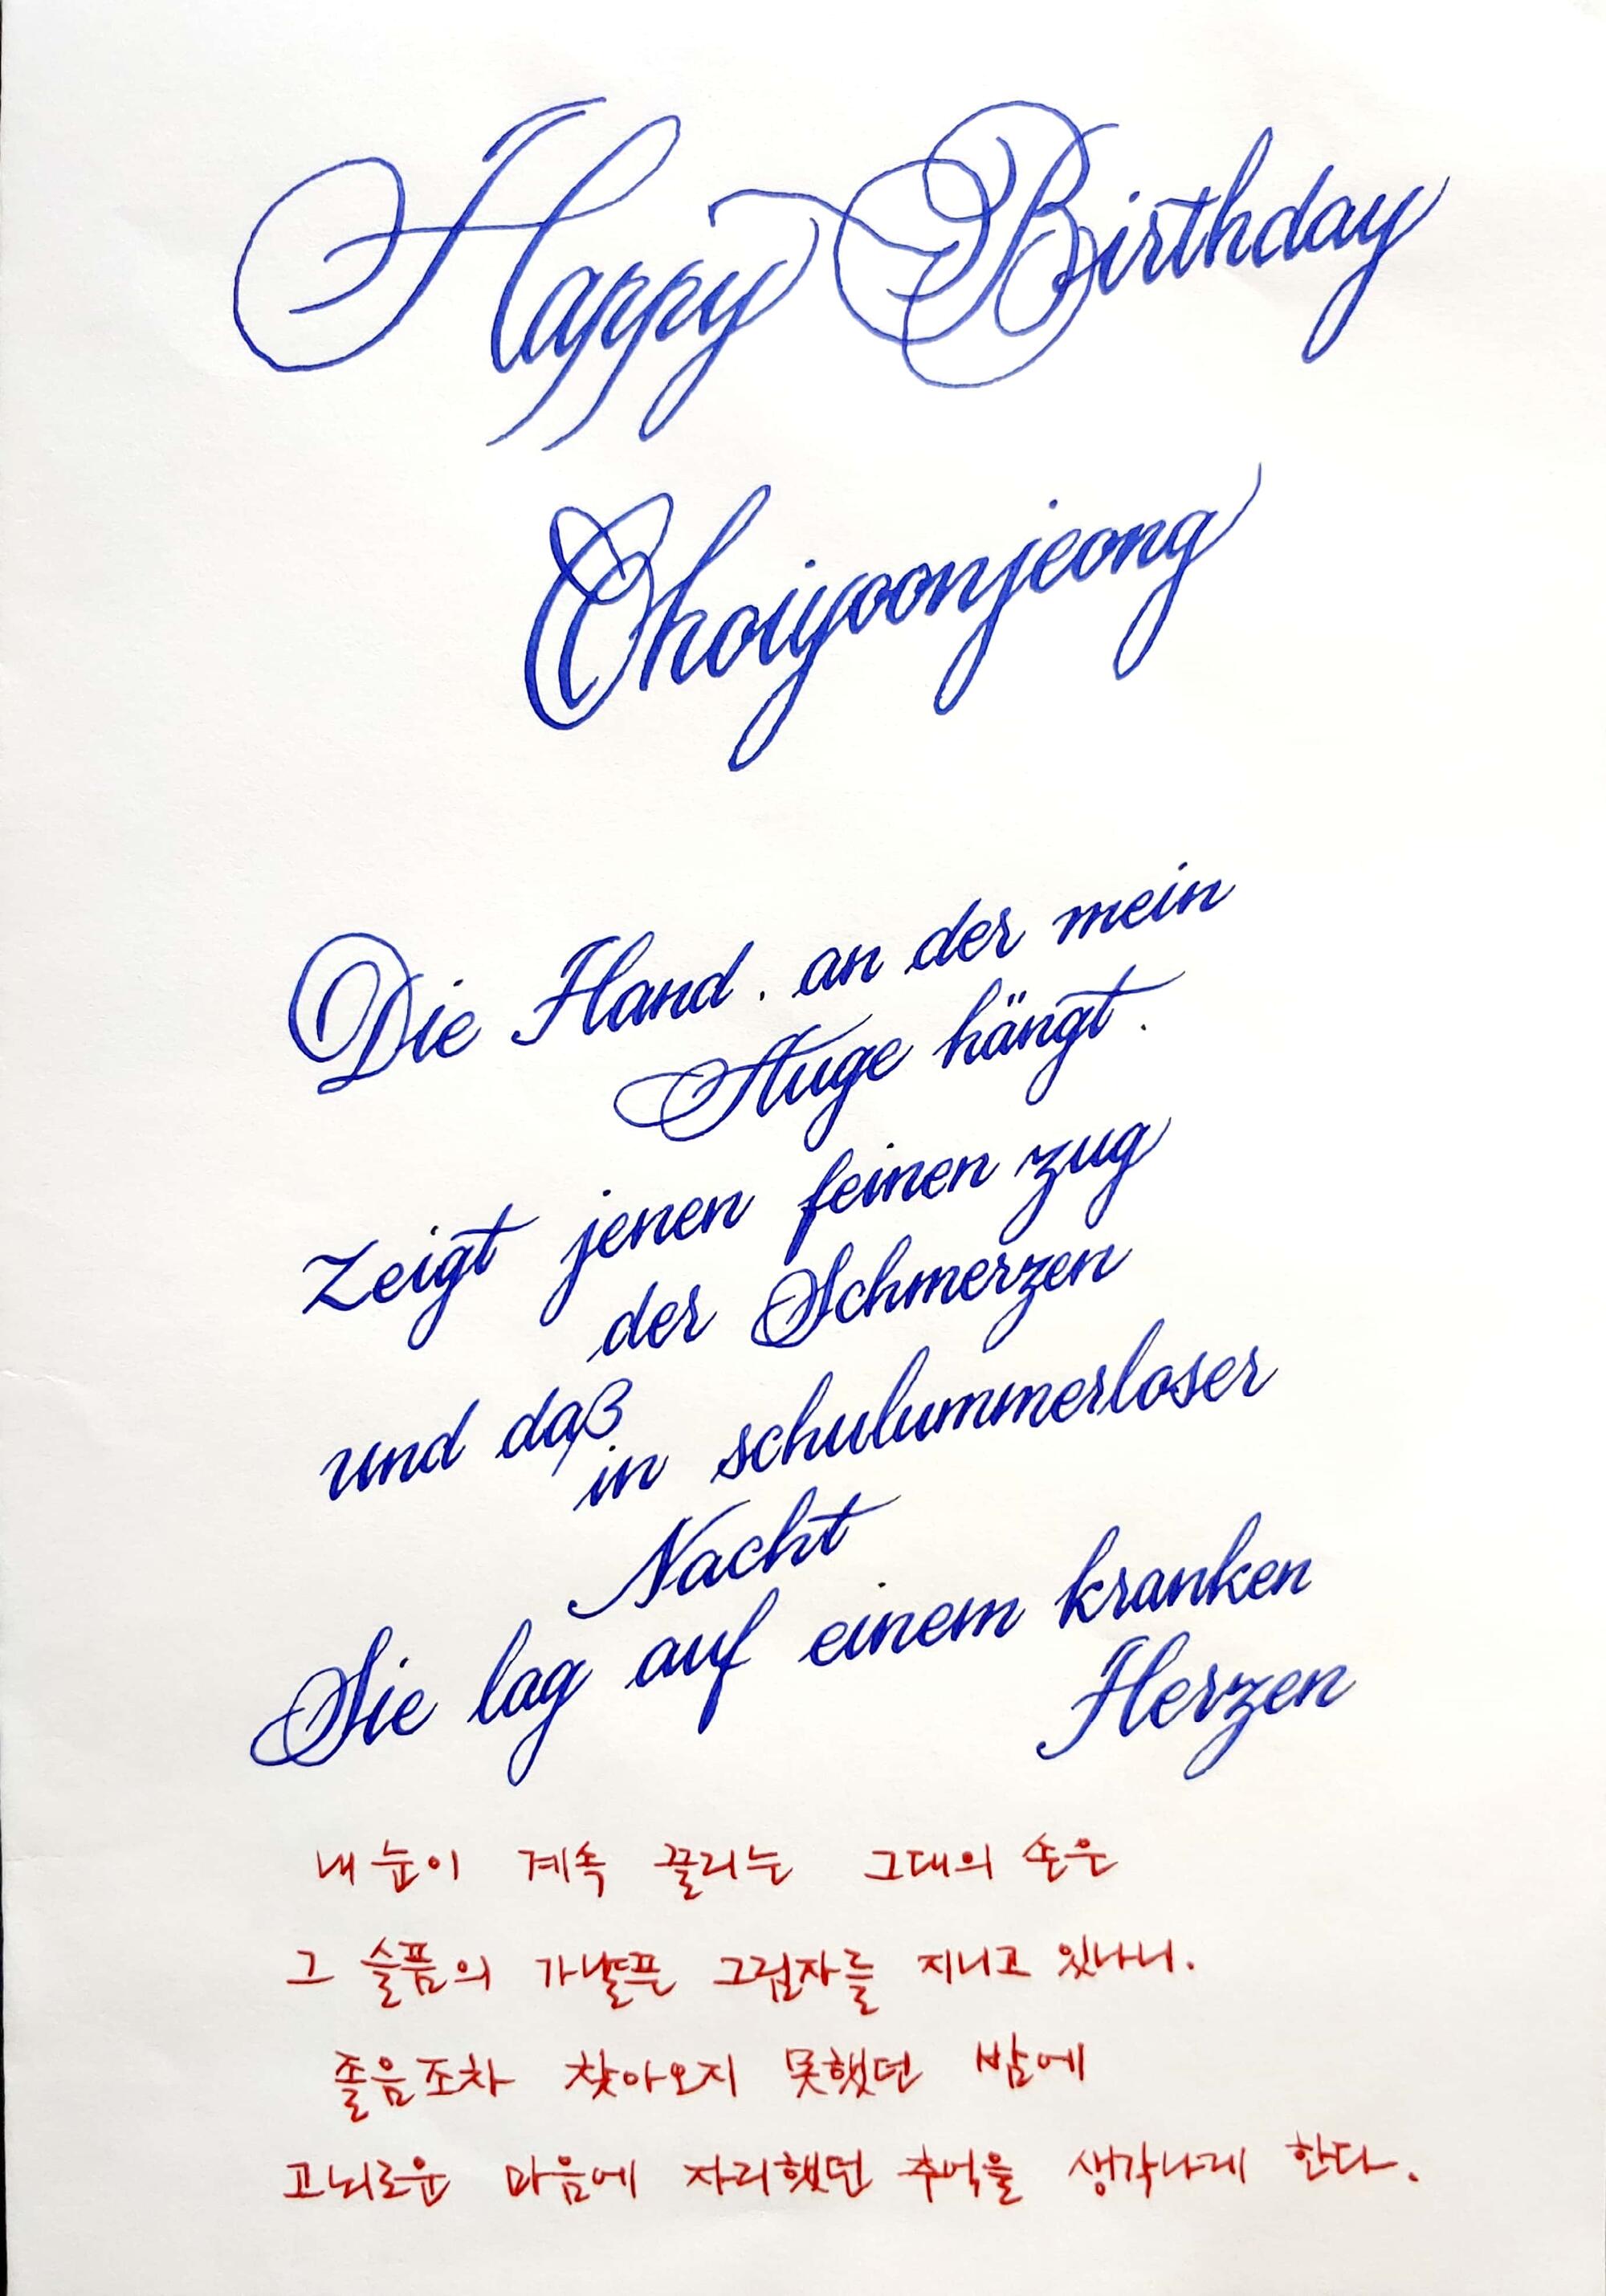 Happy Birthday
Choiyoonjeong
Die Hand. an der mein
Auge hängt.
Zeigt jenen feinen zug
der Schmerzen
und daß
in schulummerloser
Nacht
Sie lag auf einem kranken
Herzen
내 눈이 계속 끌리는 그대의 손은
그 슬픔의 가냘픈 그림자를 지니고 있나니.
졸음조차 찾아오지 못했던 밤에
고뇌로운 마음에 자리했던 추억을 생각나게 한다.